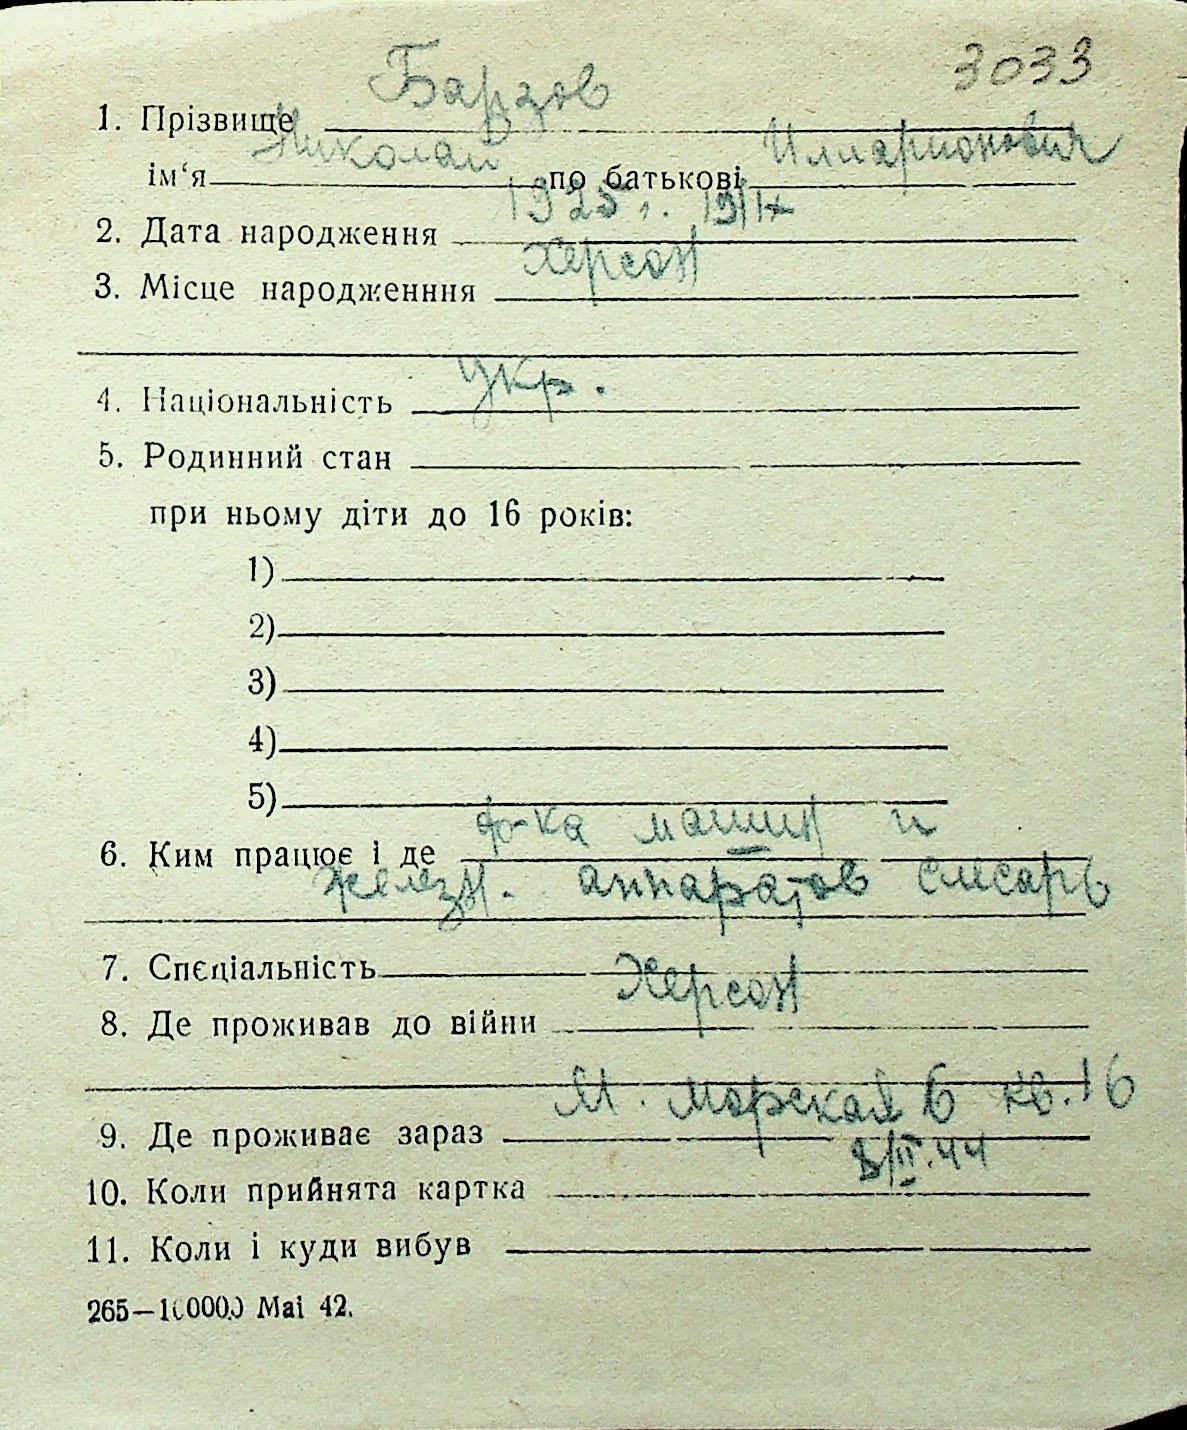 3033
1. Прізвище Барзов
ім‘я Николай по батькові Илларионович
2. Дата народження 1925 г. 19/IX
3. Місце народженння Херсон
4. Національність Укр.
5. Родинний стан
при ньому діти до 16 років:
1)
2)
3)
4)
5)
6. Ким працює і де ф-ка машин и
железн. аппаратов слесарь
7. Спеціальність
8. Де проживав до війни Херсон
9. Де проживає зараз М. Морская 6 кв. 16
10. Коли прийнята картка 8/II.44
11. Коли і куди вибув
265—100000 Mai 42.